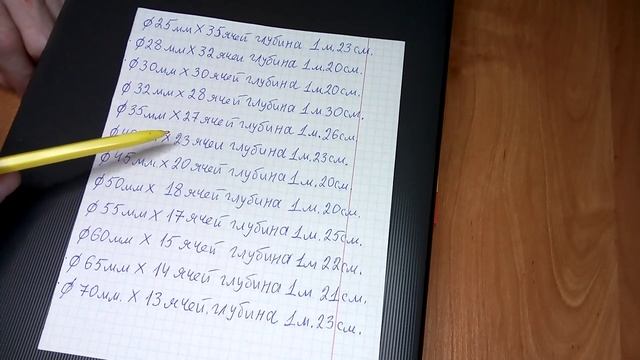 Ø25мм X 35 ячей глубина 1м.23см.
Ø28мм X 32 ячеи глубина 1м.20см.
Ø30мм X 30 ячей глубина 1м20см.
Ø32мм X 28 ячей глубина 1м.30см.
Ø35мм X 27 ячей глубина 1м.26см.
X 23 ячеи глубина 1м.23см.
Ø45мм X 20 ячей глубина 1м.20см.
Ø50мм X 18 ячей глубина 1м.20см.
Ø55мм X 17 ячей глубина 1м.25см.
Ø60мм X 15 ячей глубина 1м 22см.
Ø 65мм X 14 ячей глубина 1м 21см.
Ø 70мм. X 13 ячей. глубина 1м.23см.